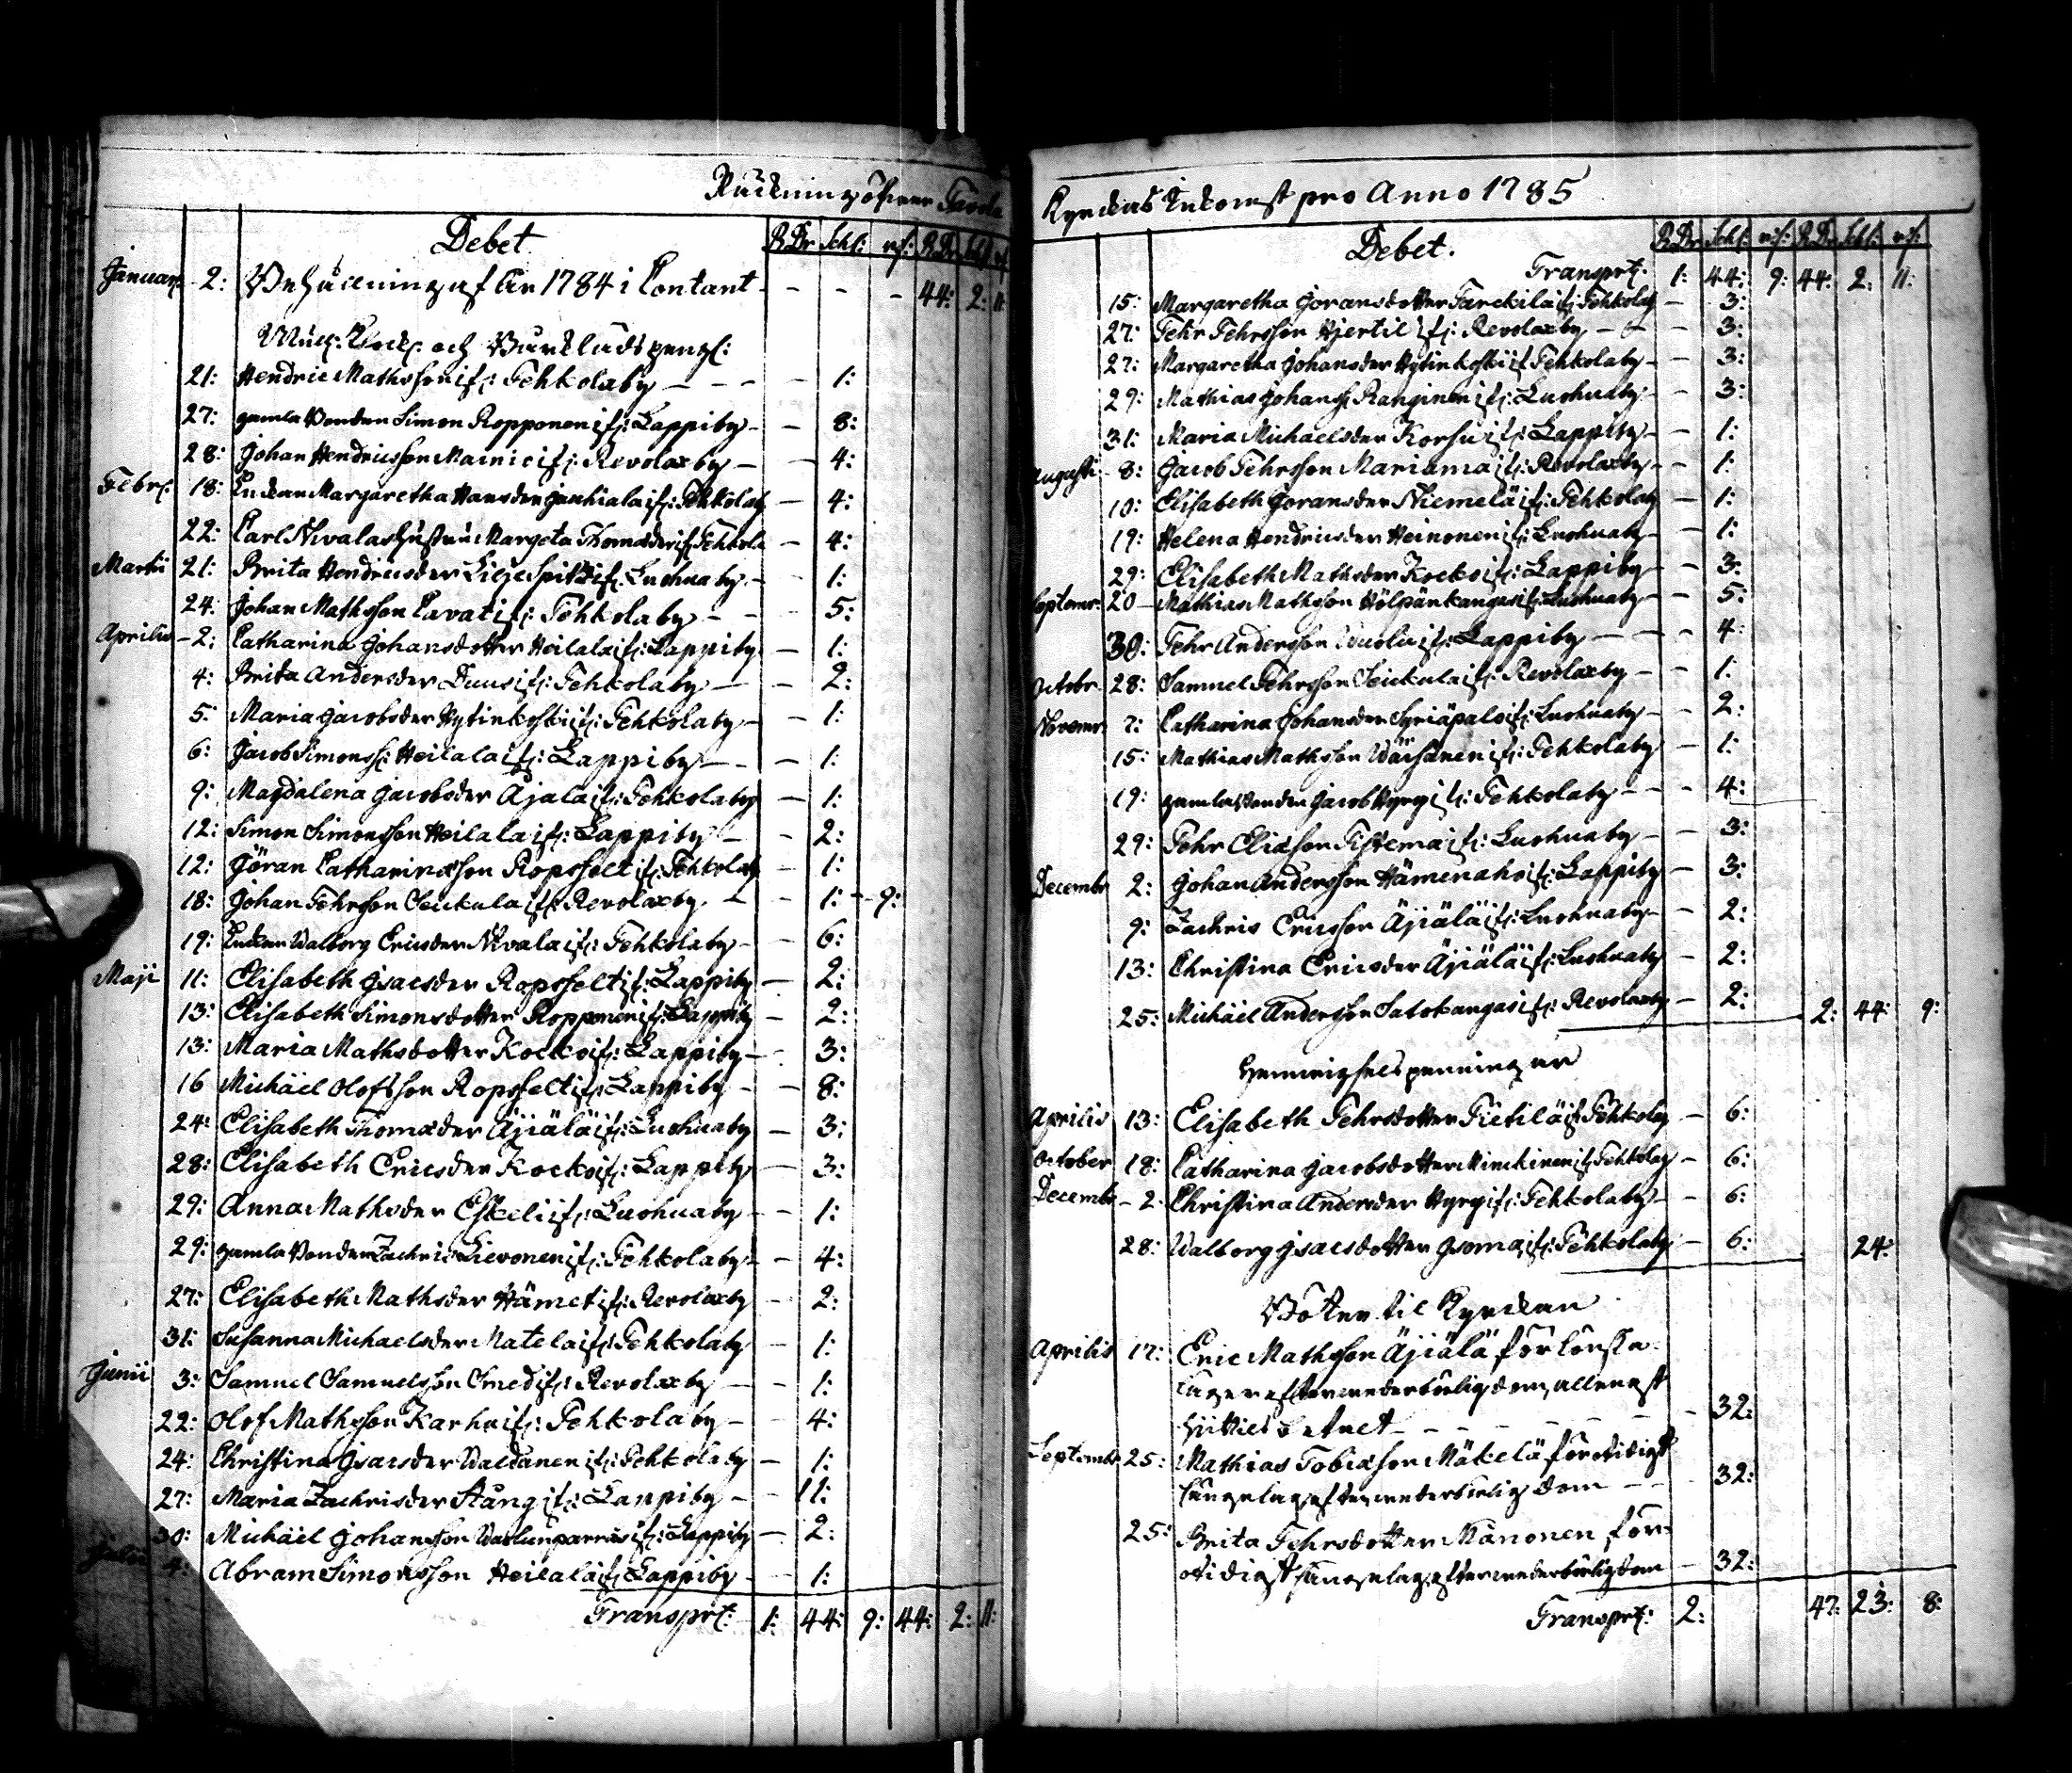 Räckning öfver
Debet RDr Schl: rs: RDr Schl rs
Januar: 2: Behållning af År 1784 i Contant - - - 44: 2: 11
och penge:
21: Hendric Mathsson if: Pehkolaby - - - - 1:
27: gamla Bonden Simon Ropponen if: Lappiby - - 8:
28: Johan Hendricsson Mainic if: Revolaxby - - 4:
Febr: 18: Enckan Margaretha Hansder Jauhiala if: Pehkolaby - 4:
22: Carl Nivalas hustru Margeta Thomæder if: Pehkola - 4:
Martii 21: Brita Hendricsder Liljespitz if: Luohuaby - - 1:
24: Johan Mathsson Pavati if: Pehkolaby - - - 5:
Aprilis - 2: Catharina Johansdotter Heilala if: Lappiby - 1:
4: Brita Andersder Duus if: Pehkolaby - - 2:
5: Maria Jacobsder Hytinkoski if: Pehkolaby - - 1:
6: Jacob Simonss: Heilala if: Lappiby - - 1:
9: Magdalena Jacobsder Äjälä if: Pehkolaby - 1:
12: Simon Simonsson Heilala if: Lappiby - - 2:
12: Göran Catharinæson Ropsfelt if: Pehkolaby - 1:
18: Johan Pehrsson Seickula if: Revolaxby - - 1: - 9:
19: Enckan Walborg Ericsder Nivala if: Pehkolaby - - 6:
Maji 11: Elisabeth Isacsder Ropsfelt if: Lappiby - 2:
13: Elisabeth Simonsdotter Ropponen if: Lappiby - 2:
13: Maria Mathsdotter Kocko if: Lappiby - - 3:
16 Michäel Olofsson Ropsfelt if: Lappiby - - 8:
24: Elisabeth Thomæder Äjiälä if: Luohuaby - 3:
28: Elisabeth Ericsder Kocko if: Lappiby - 3:
29: Anna Mathsder Eskeli if: Luohuaby - - 1:
29: gamla Bonden Zachris Lievonen if: Pehkolaby - - 4:
27: Elisabeth Mathsder Hämet if: Revolaxby - 2:
31: Susanna Michaelsder Matela if: Pehkolaby - 1:
Junii 3: Samuel Samuelsson Smed if: Revolaxby - - 1:
22: Olof Mathsson Karhu if: Pehkolaby - - 4:
24: Christina Isacsder Waldanen if: Pehkolaby - 1:
27: Maria Zachrisder Stång if: Lappiby - - 11:
30: Michäel Johansson if: Lappiby - 2:
Julii 4: Abram Simonsson Heilala if: Lappiby - - 1:
Transprt: 1: 44: 9: 44: 2: 11:
Kyrckas Inkomst pro Anno 1785
Debet. RDr Schl: rs: RDr Schl: rs:
Transprt: 1: 44: 9: 44: 2: 11:
15: Margaretha Göransdotter Tarckila if: Pehkolaby - 3:
27: Pehr Pehrsson Hjertil if: Revolaxby - - - 3:
27: Margaretha Johansder Hytinkoski if Pehkolaby - - 3:
29: Mathias Johanss: Ranginen if: Luohuaby - - 3:
31: Maria Michaelsder Korsu if: Lappiby - - 1:
Augusti - 8: Jacob Pehrsson Mariama if: Revolaxby - - 1:
10: Elisabeth Göransder Niemelä if: Pehkolaby - 1:
19: Helena Hendricsder Heinonen if: Luohuaby - 1:
29: Elisabeth Mathsder Kocko if: Lappiby - - 3:
Septemr. 20 - Mathias Mathsson Hölpänkangas if: Luohuaby - - 5:
30: Pehr Andersson if: Lappiby - - - - 4:
Octobr 28: Samuel Pehrsson Seickula if: Revolaxby - - 1:
Novemr: 7: Catharina Johansder Syriäpalo if: Luohuaby - - 2:
15: Mathias Mathsson Wäisänen if: Pehkolaby - 1:
19: gamla Bonden Jacob Hyry if: Pehkolaby - - - 4:
29: Pehr Eliæson Tistema if: Luohuaby - - 3:
Decembr 2: Johan Andersson Hämenaho if: Lappiby - - 3:
9: Zachris Ericsson Äjiälä if: Luohuaby - - 2:
13: Christina Ericsder Äjiälä if: Luohuaby - 2:
25: Michäel Andersson Satokangas if: Revolaxby - 2: 2: 44: 9:
penningar
Aprilis 13: Elisabeth Pehrsdotter Pietilä if: Pehkolaby - 6:
October 18: Catharina Jacobsdotter Minckinen if: Pehkolaby - 6:
Decembr - 2: Christina Andersder Hyry if: Pehkolaby - - 6:
28: Walborg Isacsdotter Isoma if: Pehkolaby - 6: 24:
Böter til Kyrckan
Aprilis 17: Eric Mathsson Äjiälä för lönska-
läger efter dom,
- - - - - 32:
Septembr 25: Mathias Tobiæson Mäkelä för otidigt
sängelag, efter dom - - 32:
25: Brita Pehrsdotter Manonen för
otidigt sängelag, efter dom - 32:
Transprt: 2: 47: 23: 8: